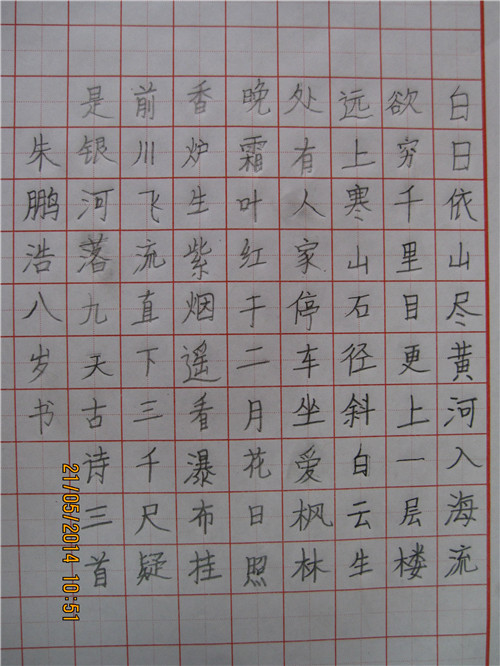 白日依山尽黄河入海流
欲穷千里目更上一层楼
远上寒山石径斜白云生
处有人家停车坐爱枫林
晚霜叶红于二月花日照
香炉生紫烟遥看瀑布挂
前川飞流直下三千尺疑
是银河落九天古诗三首
朱鹏浩八岁书
21/05/2014 10:51